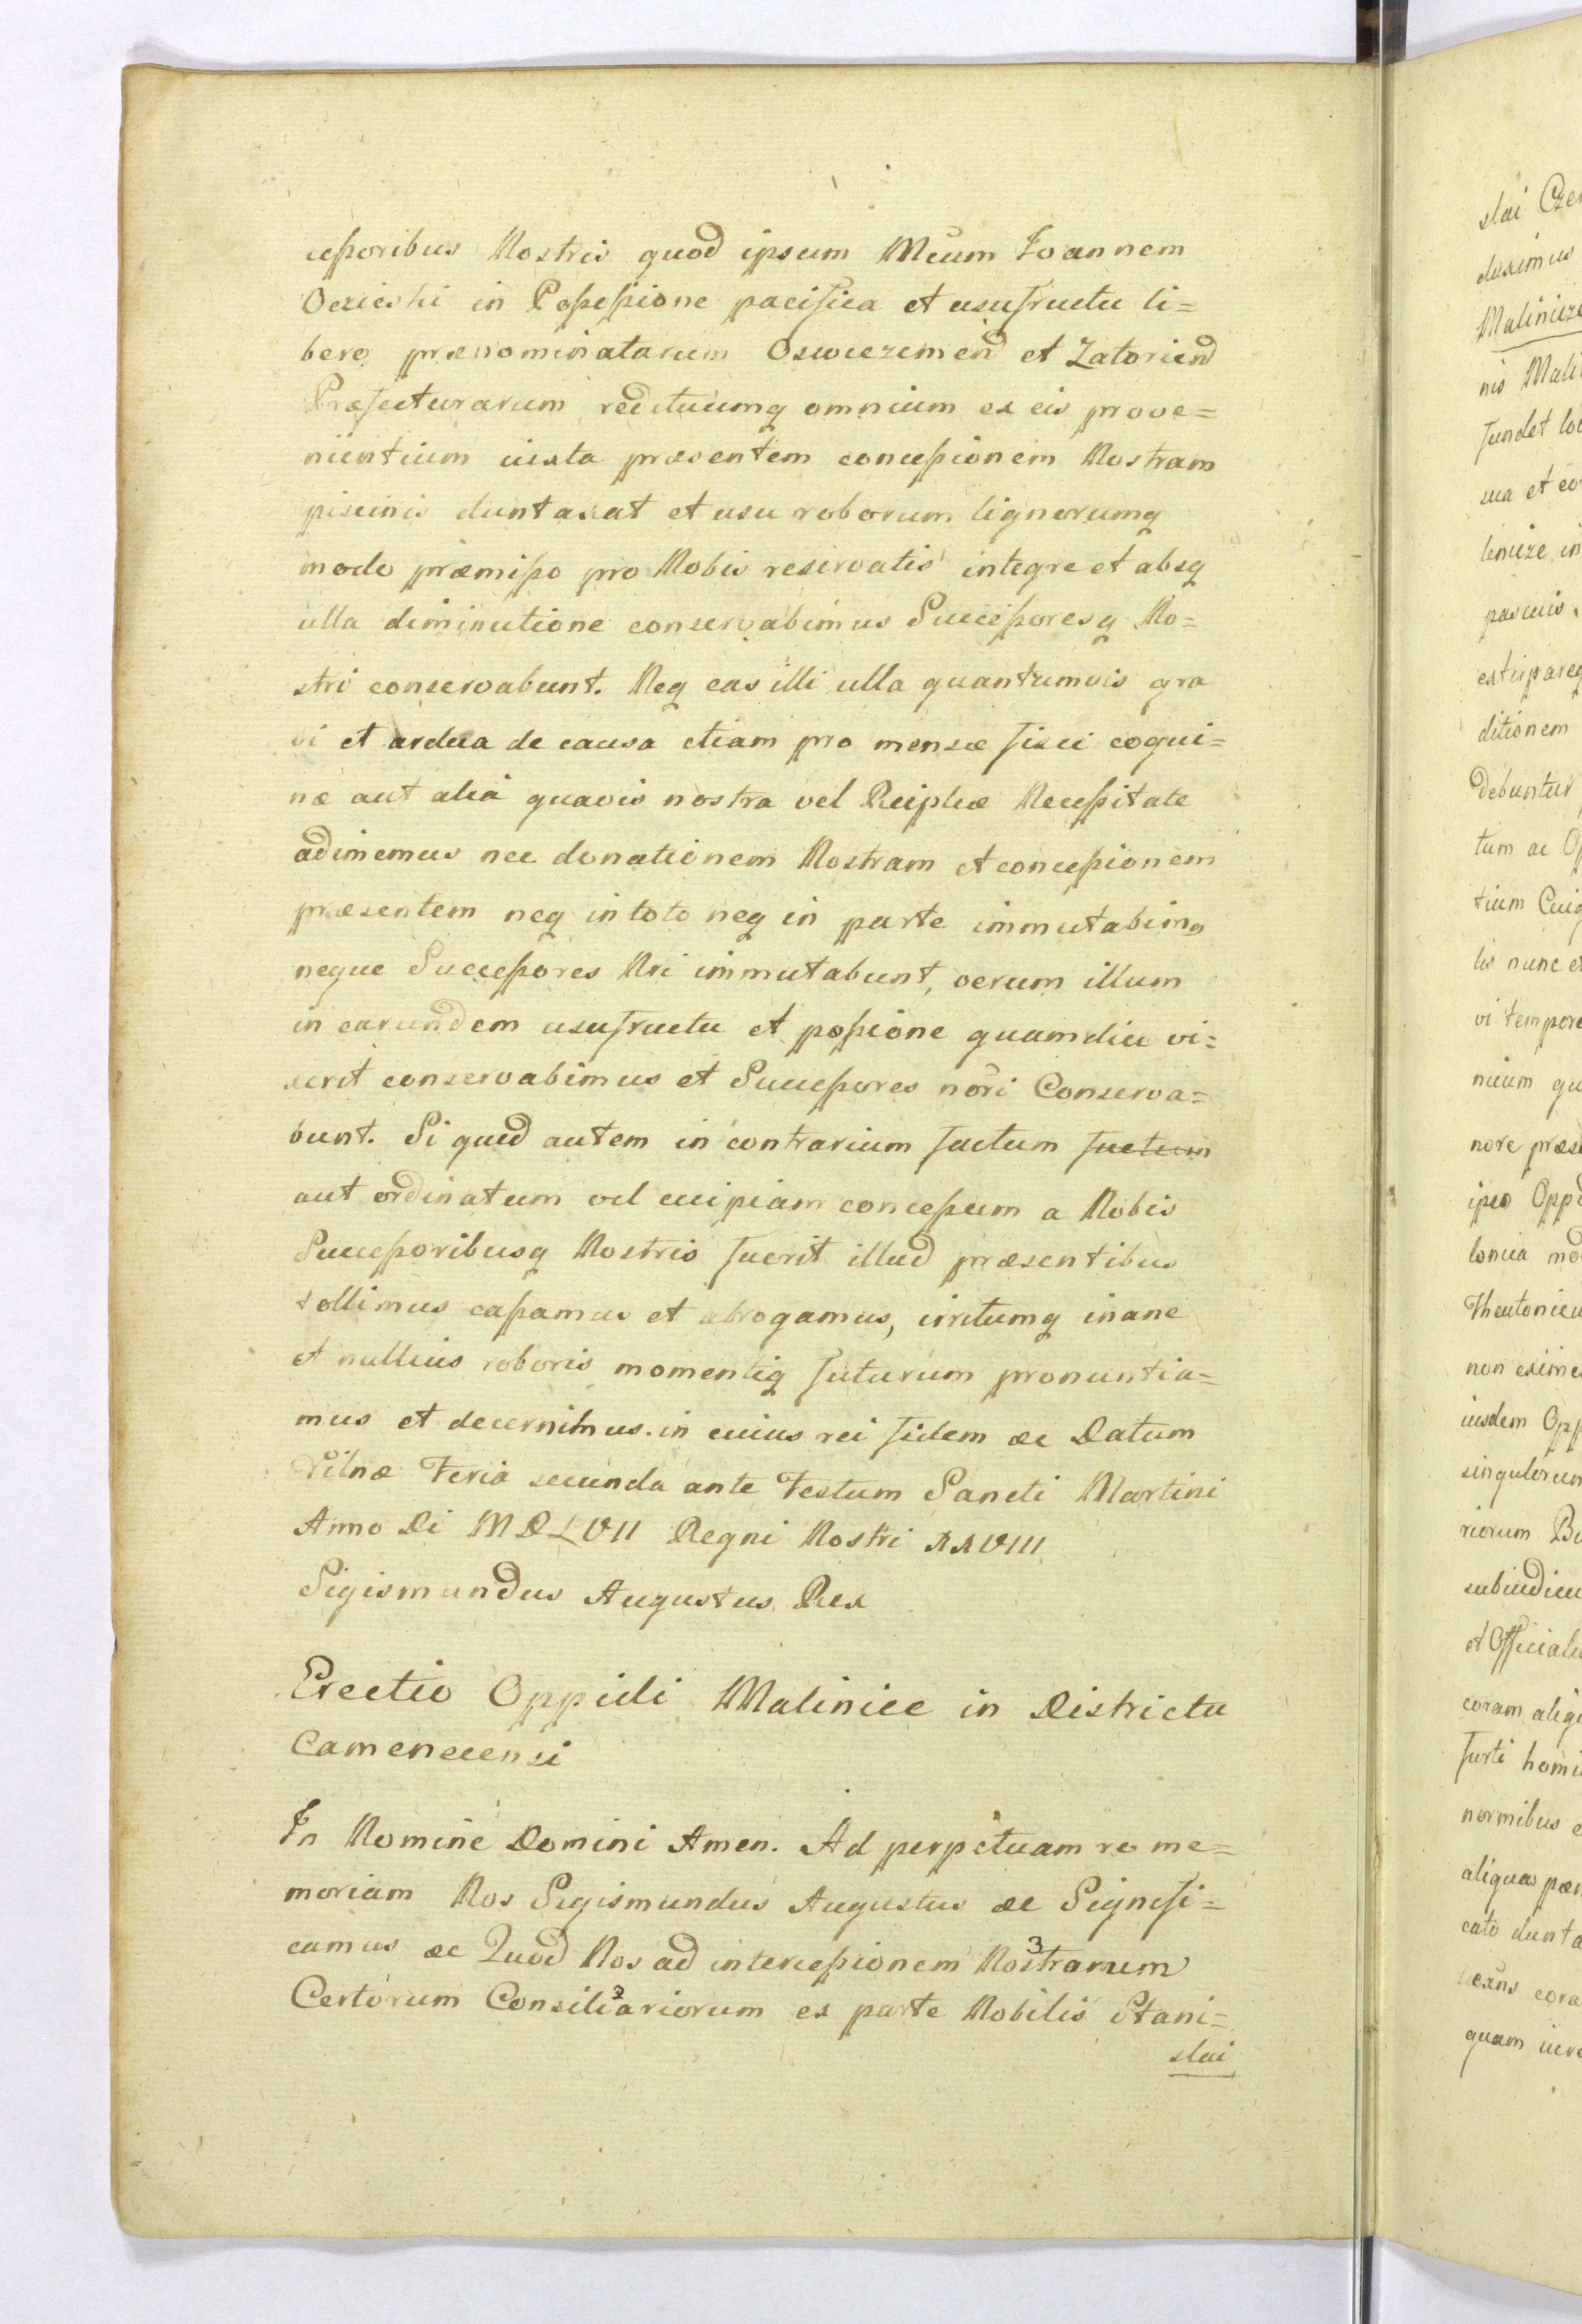 cessoribus Nostris quod ipsum Mcum Joannem
Ocieski in Possessione pacifica et usufructu li=
bero prænominatarum Oswieczimen̄d et Zatorien̄d
Præfecturarum redituumq omnium ex eis prove=
nientium iuxta præsentem concessionem Nostram
piscinis duntaxat et usu roborum lignorumq
modo præmisso pro Nobis reservatis integre et absq
ulla diminutione conservabimus Successoresq No=
stri conservabunt. Neq eas illi ulla quantumvis gra
vi et ardua de causa etiam pro mensæ fisci coqui=
næ aut alia quavis nostra vel Reiplcæ Necessitate
adimemus nec donationem Nostram et concessionem
præsentem neq in toto neq in parte immutabimq
neque Successores Nri immutabunt, verum illum
in earundem usufructu et possione quamdiu vi=
xerit conservabimus et Successores nōri Conserva=
bunt. Si quid autem in contrarium factum factum
aut ordinatum vel cuipiam concessum a Nobis
Successoribusq Nostris fuerit illud præsentibus
tollimus cassamus et abrogamus, irritumq inane
et nullius roboris momentiq futurum pronuntia=
mus et decernimus. in cuius rei fidem &c Datum
Vilnæ Feria secunda ante Festum Sancti Martini
Anno Di MDLVII Regni Nostri XXVIII
Sigismundus Augustus Rex
Erectio Oppidi Maliniec in Districtu
Camenecensi
In Nomine Domini Amen. Ad perpetuam re me=
moriam Nos Sigismundus Augustus &c Signifi=
camus &c Quod Nos ad intercessionem Nostrarum 3
Certorum Consiliariorum 2 ex parte Nobilis Stani=
slai
slai
duximus
nis
ditionem
debuntur
tum ac
lis nunc
vi tempore
non
singulorum
et
coram
normibus
aliquas
cato
quam